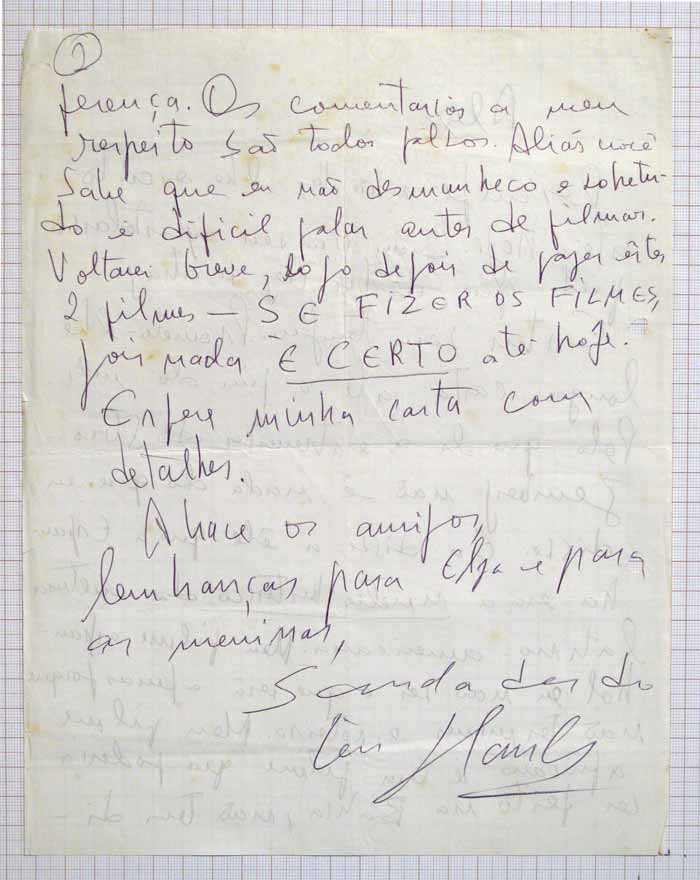 2
ferença. Os comentarios a meu
respeito são todos falsos. Aliás você
sabe que eu não desmunheco e sobretu-
do é dificil falar antes de filmar.
Voltarei breve, logo depois de fazer êstes
2 filmes — SE FIZER OS FILMES,
pois nada É CERTO até hoje.
Espere minha carta com
detalhes.
Abrace os amigos,
lembranças para Elza e para
as meninas,
Saudades do